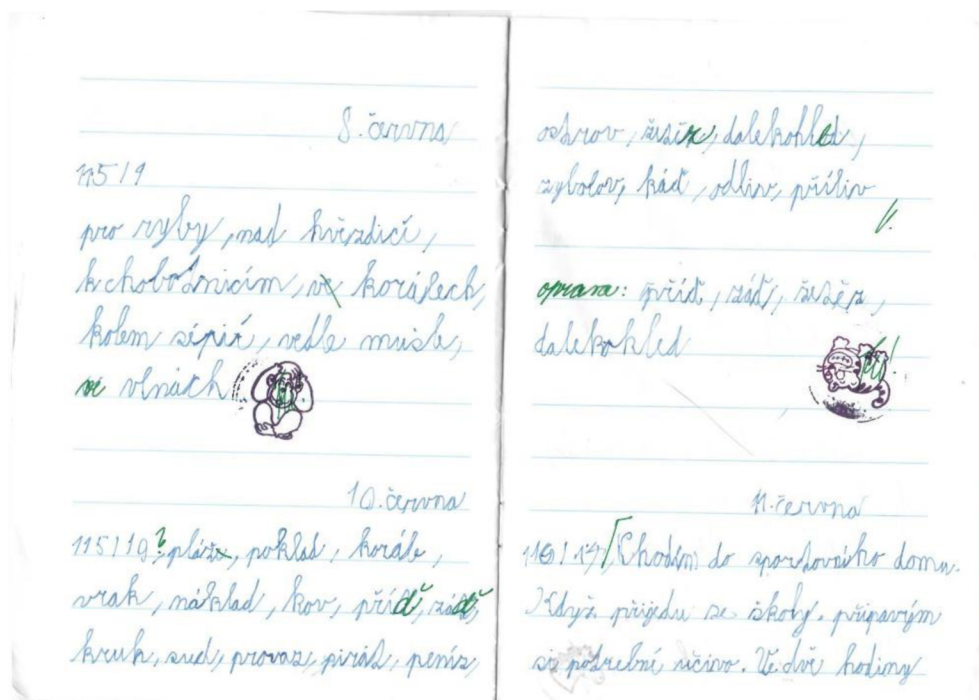 8. června
115/9
pro ryby, nad hvězdicí,
k chobotnicím, v korálech,
kolem sépií, vedle mušle,
ve vlnách
10. června
115/10 ? pláž, poklad, korále,
vrak, náklad, kov, příď, záď,
kruh, sud, provaz, pirát, peníz,
ostrov, dalekohled,
rybolov, káď, odliv, příliv
oprava: příď, záď, řetěz,
dalekohled
11. června
116/14 Chodím do sportovního domu.
Když přijedu ze školy, připravím
si potřebné učivo. Ve dvě hodiny